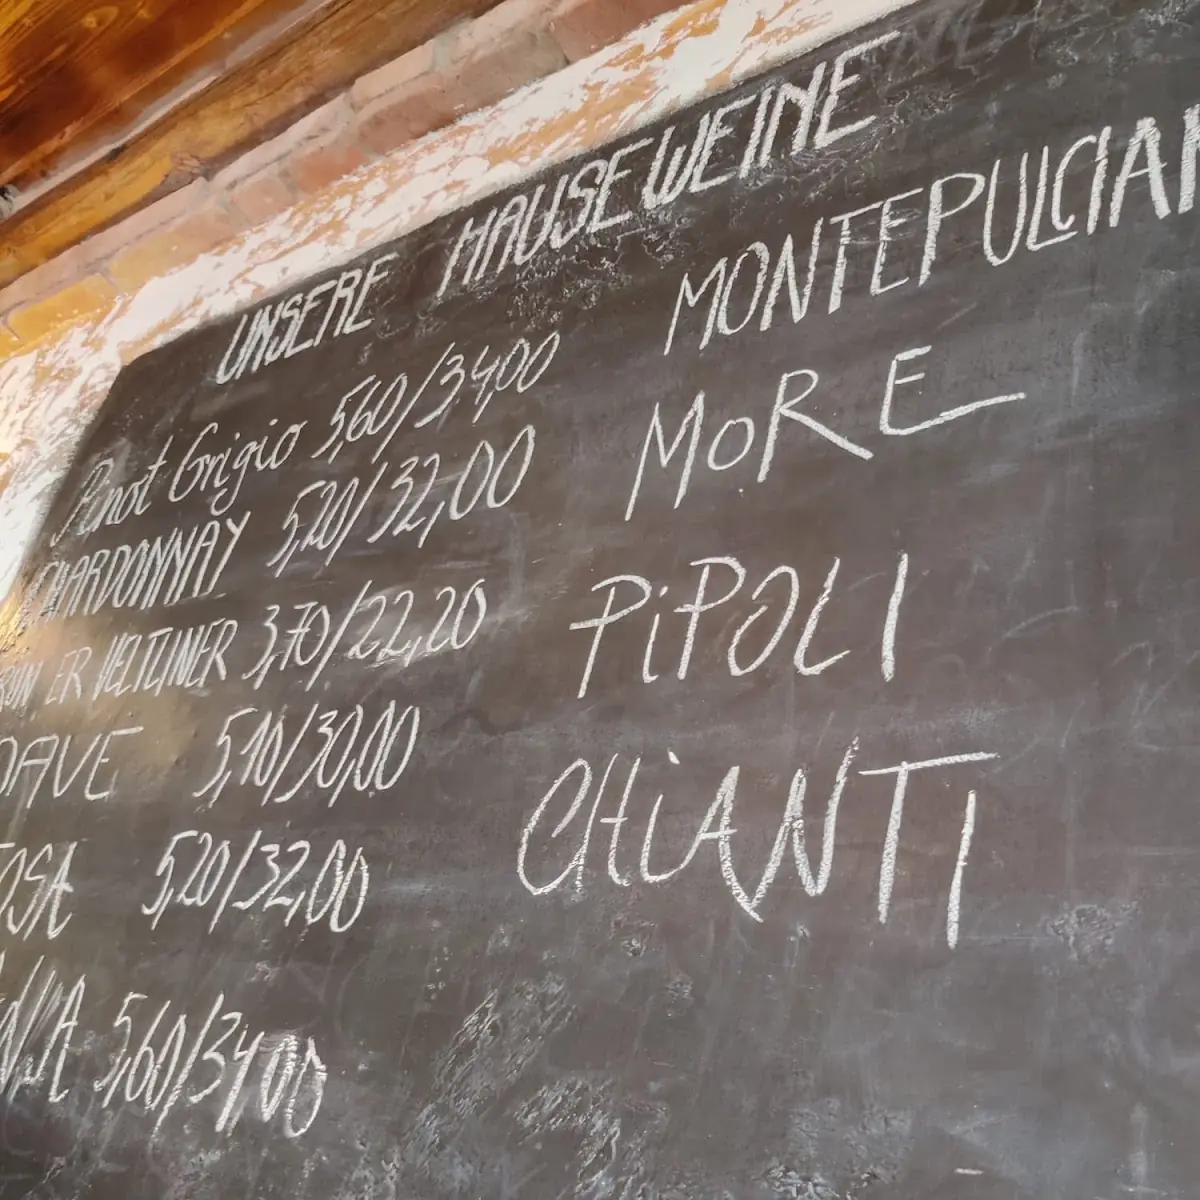 UNSERE HAUSEWEINE
Pinot Grigio 5,60/34,00
CHARDONNAY 5,20/32,00
ER VELTLINER 3,70/22,20
5,10/30,00
5,20/32,00
5,60/34,00
MONTEPULCIAN
MORE
PiPOLI
CHiANTI